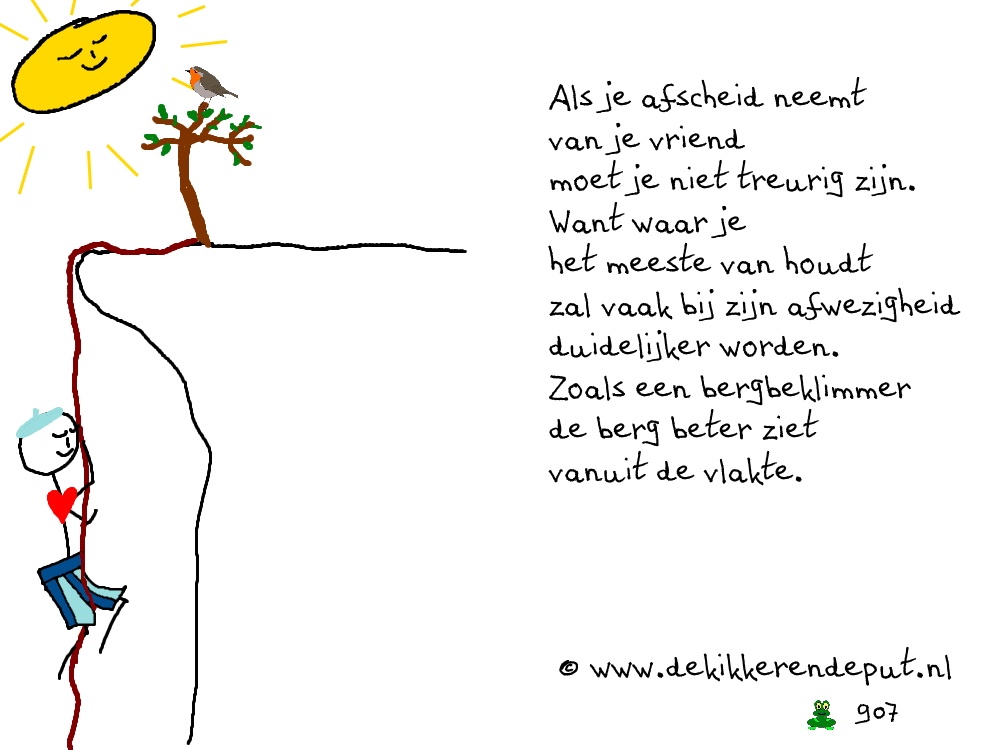 Als je afscheid neemt
van je vriend
moet je niet treurig zijn.
Want waar je
het meeste van houdt
zal vaak bij zijn afwezigheid
duidelijker worden.
Zoals een bergbeklimmer
de berg beter ziet
vanuit de vlakte.
© www.dekikkerendeput.nl
907